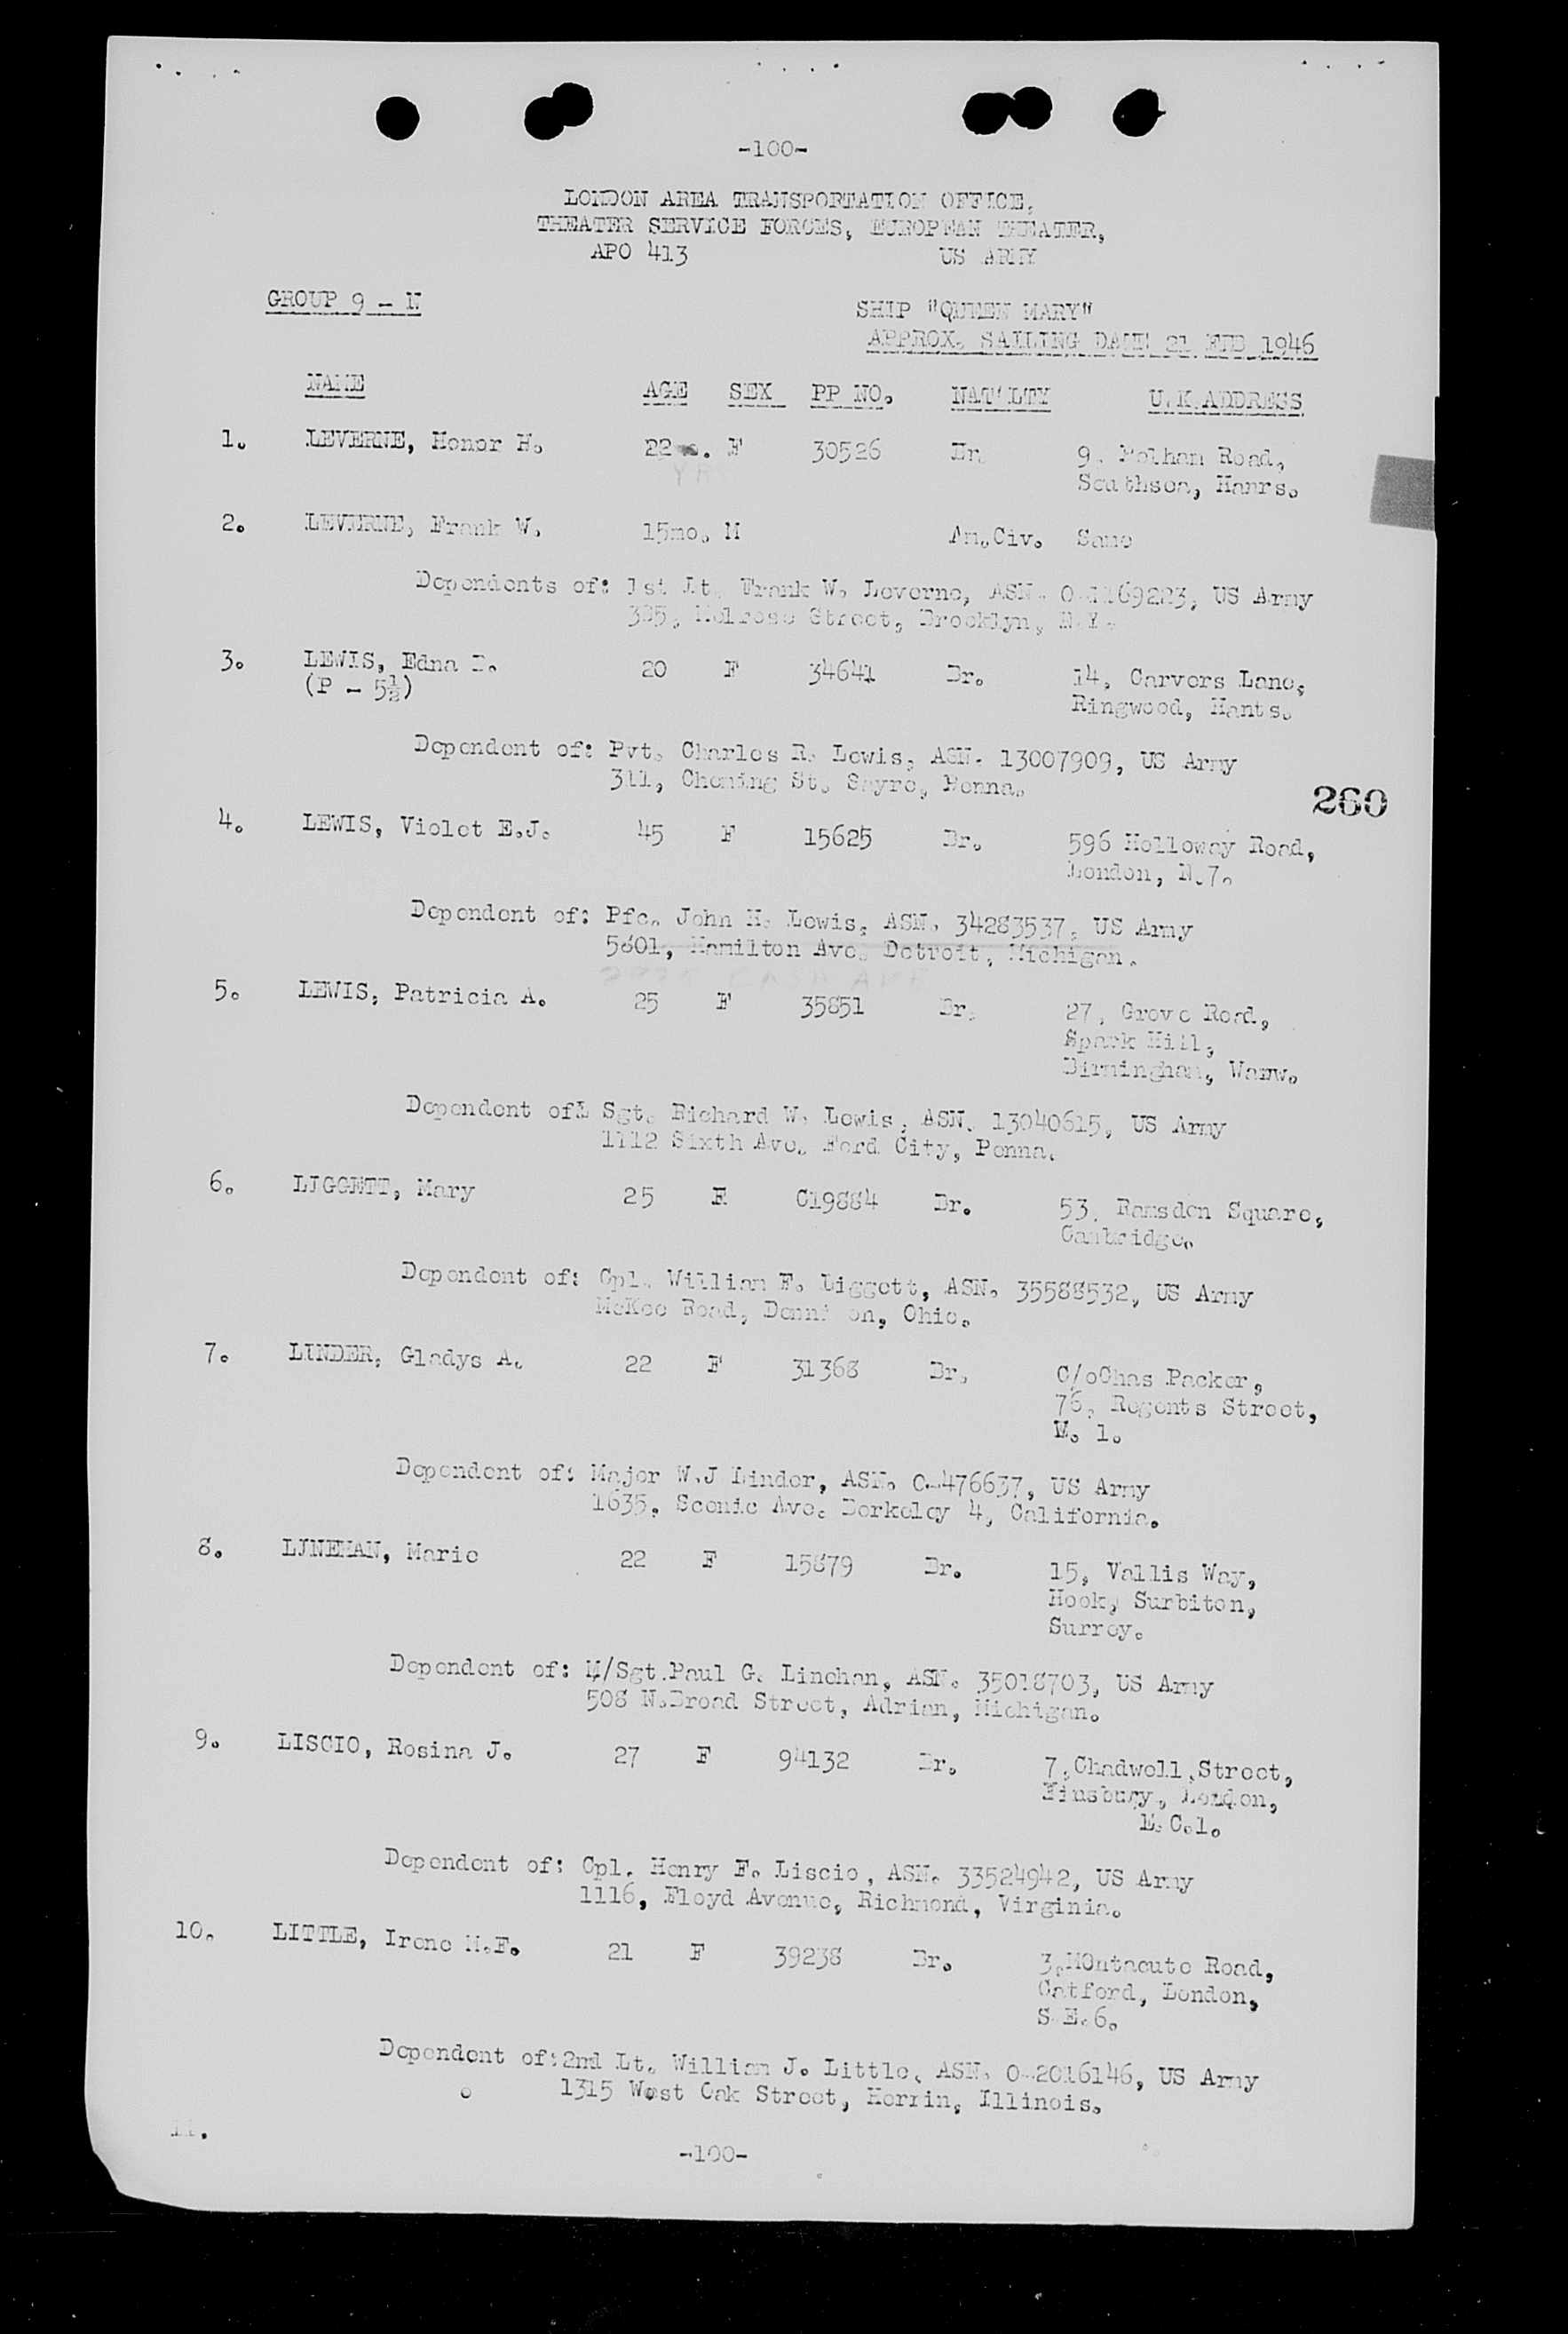 -100-
LONDON AREA TRANSPORTATION OFFICE,
THEATER SERVICE FORCES, EUROPEAN THEATER,
APO 413 US ARMY
GROUP 9 - N
SHIP "QUEEN MARY"
APPROX. SAILING DATE 21 FEB 1946
NAME AGE SEX PP NO. NAT'LTY U.K.ADDRESS
1. LEVERNE, Honor H. 22 . F 30526 Br. 9, Road,
Southsea, Hanrs.
2. LEVERNE, Frank W. 15mo. M Am.Civ. Same
Dependents of: 1st Lt. Frank W. Leverne, ASN. US Army
Melrose Street, Brooklyn, N.Y.
3. LEWIS, Edna 20 F 34641 Br. 14, Carvers Lane,
(P - 5½) Ringwood, Hants.
Dependent of: Pvt. Charles R. Lewis, ASN. 13007909, US Army
311, Cheming St. Sayre, Penna.
260
4. LEWIS, Violet E.J. 45 F 15625 Br. 596 Holloway Road,
London, N.7.
Dependent of: Pfc. John H. Lewis, ASN. 34283537, US Army
5801, Hamilton Ave. Detroit, Michigan.
5. LEWIS, Patricia A. 25 F 35851 Br. 27, Grove Road,
Spark Hill,
Birmingham, Warw.
Dependent of: Sgt. Richard W. Lewis, ASN. 13040615, US Army
1112 Sixth Ave. Ford City, Penna.
6. LIGGETT, Mary 25 F C19884 Br. 53, Ramsden Square,
Cambridge.
Dependent of: Cpl. William F. Liggett, ASN. 35588532, US Army
McKee Road, Denni on, Ohio.
7. LINDER, Gladys A. 22 F 31368 Br. C/oChas Packer,
76, Regents Street,
W. 1.
Dependent of: Major W.J Linder, ASN. O-476637, US Army
1635, Scenic Ave. Berkeley 4, California.
8. LINEHAN, Marie 22 F 15879 Br. 15, Vallis Way,
Hook, Surbiton,
Surrey.
Dependent of: M/Sgt.Paul G. Linehan, ASN. 35018703, US Army
508 N.Broad Street, Adrian, Michigan.
9. LISCIO, Rosina J. 27 F 94132 Br. 7,Chadwell,Street,
Finsbury, London,
E.C.1.
Dependent of: Cpl. Henry F. Liscio, ASN. 33524942, US Army
1116, Floyd Avenue, Richmond, Virginia.
10. LITTLE, Irene M.F. 21 F 39238 Br. 3,MOntacute Road,
Catford, London,
S.E.6.
Dependent of:2nd Lt. William J. Little, ASN. O-2016146, US Army
1315 West Oak Street, Herrin, Illinois.
11.
-100-